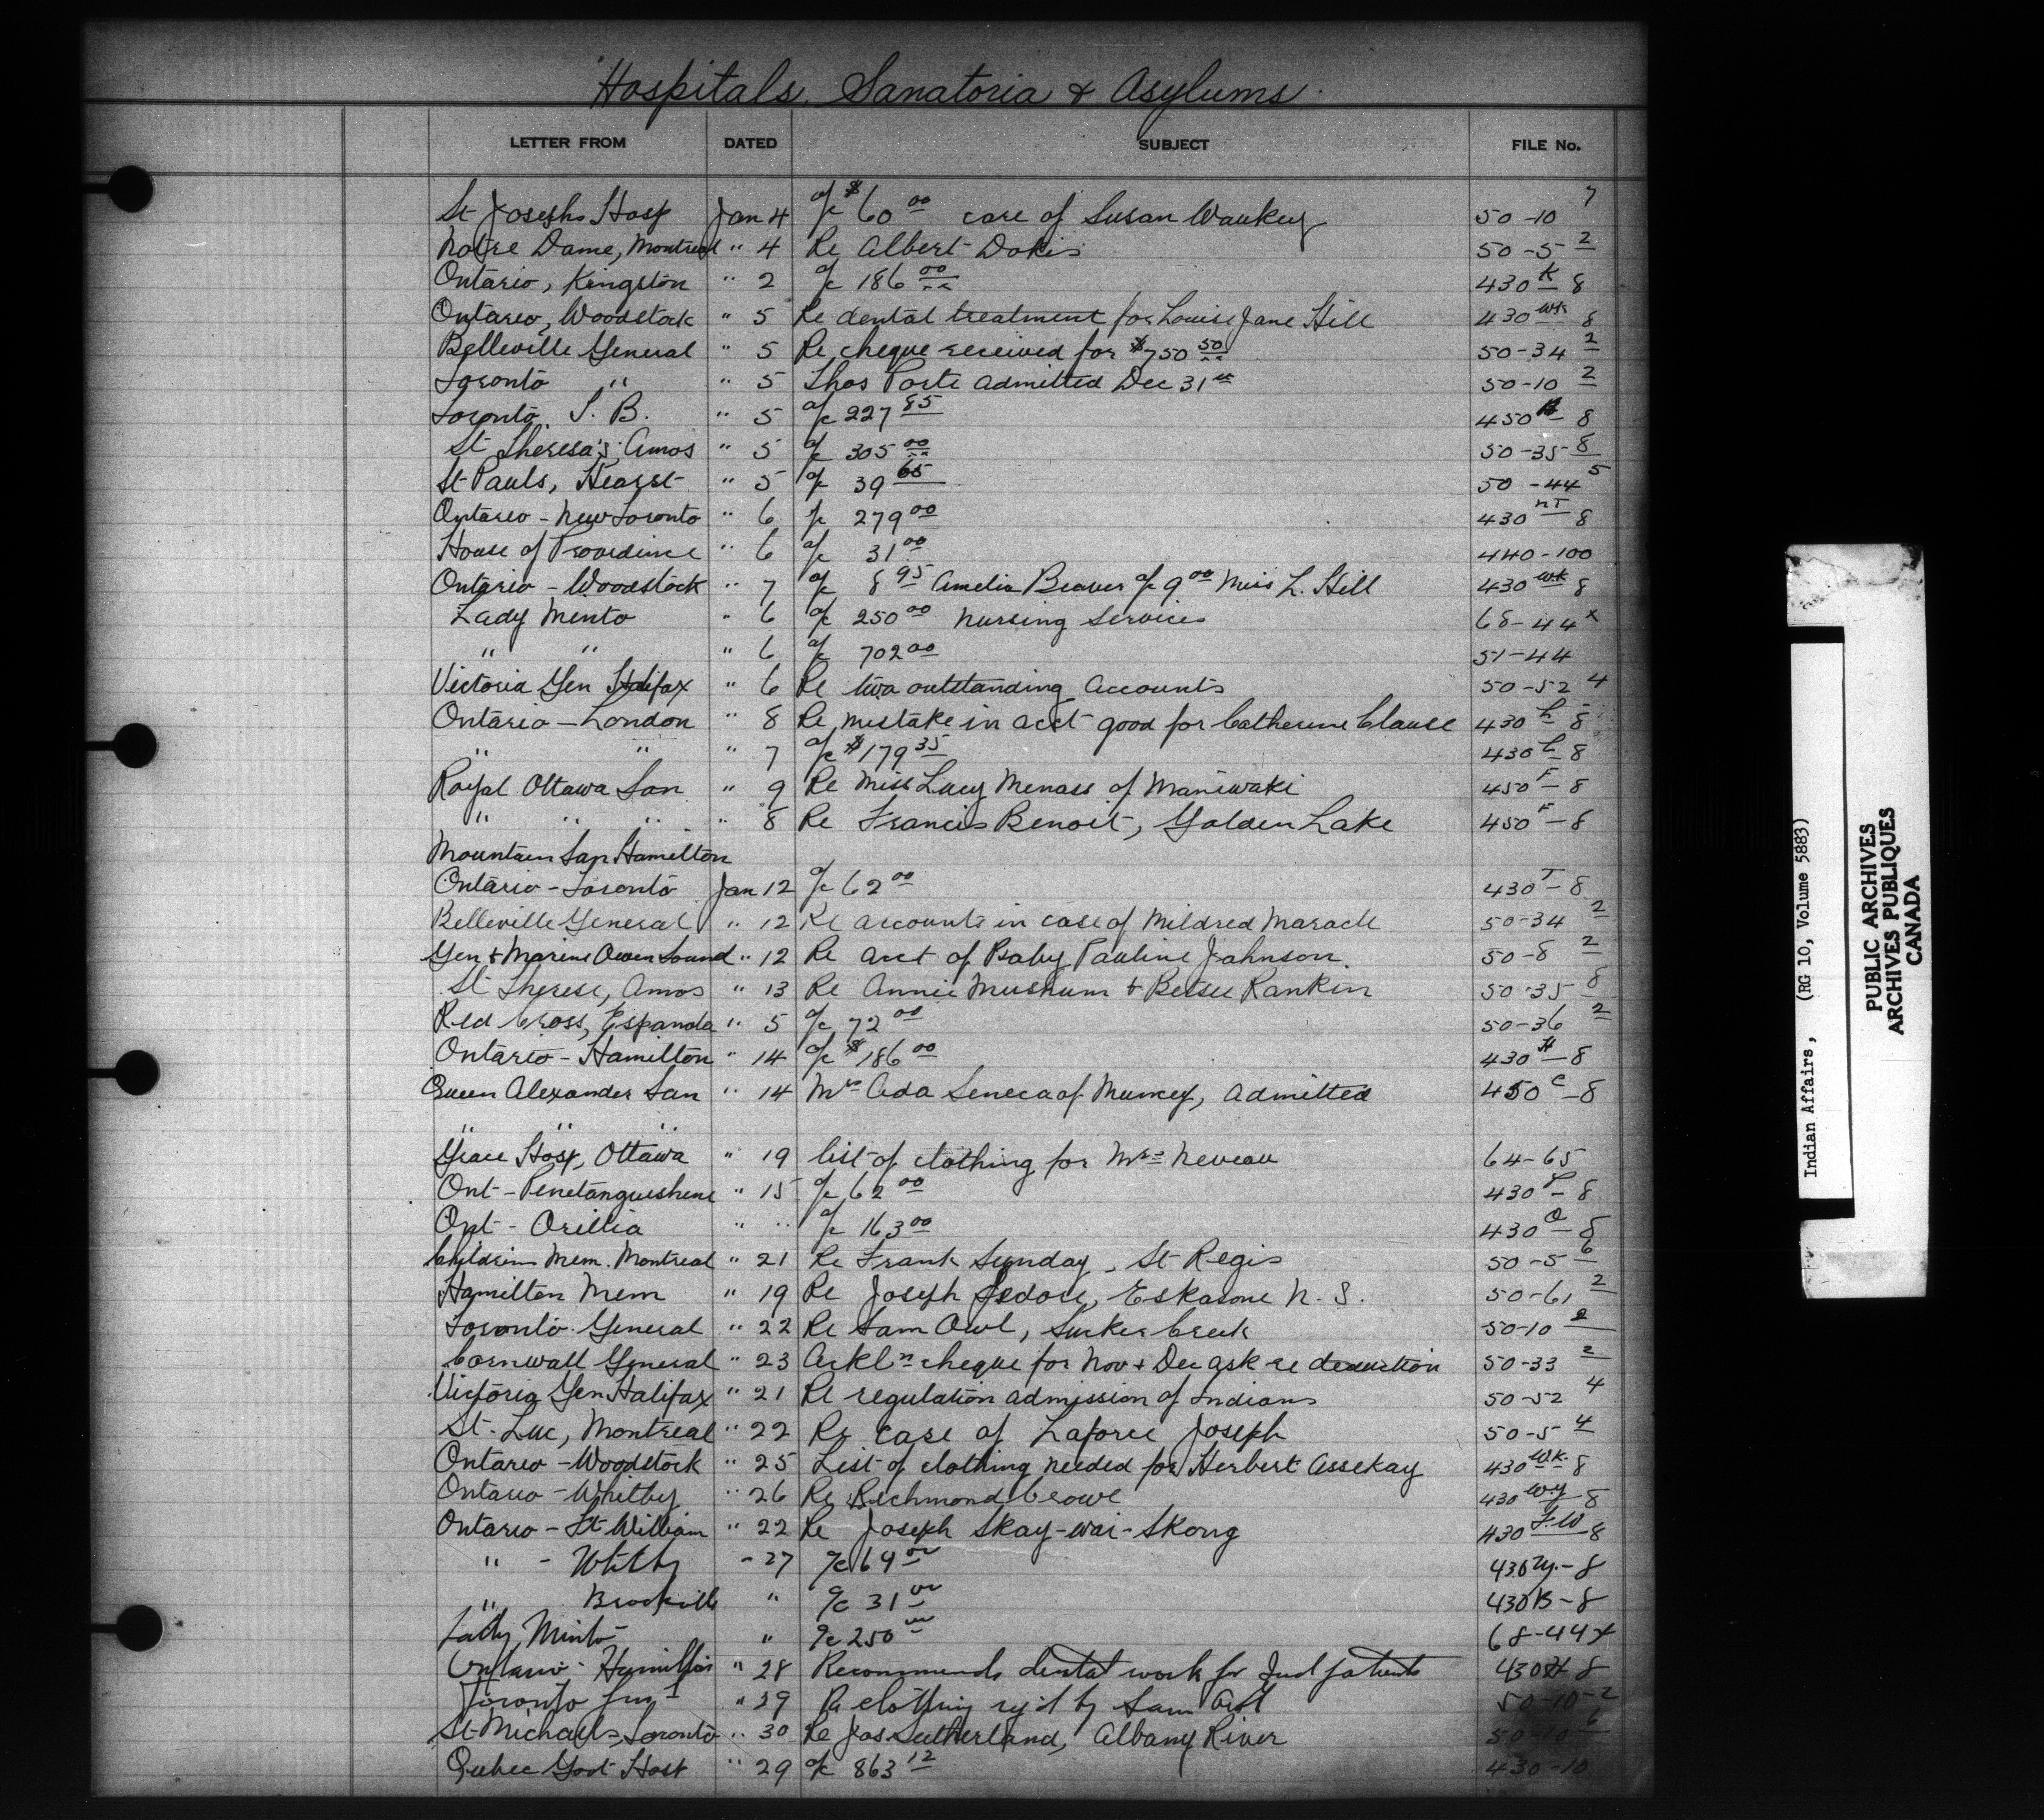 Hospitals, Sanatoria & Asylums
LETTER FROM DATED SUBJECT FILE No.
St Josephs Hosp Jan 4 a/c $60 00 care of Susan Waukey 50-10 7
Notre Dame, Montreal " 4 Re Albert Dokis 50-5 2
Ontario, Kingston " 2 a/c 186 00 430 K 8
Ontario, Woodstock " 5 Re dental treatment for Louise Jane Hill 430 Wk 8
Belleville General " 5 Re cheque received for $750 50 50-34 2
Toronto " " 5 Thos Porte admitted Dec 31st 50-10 2
Toronto T. B. " 5 a/c 227 85 450 B 8
St Theresa's, Amos " 5 a/c 305 00 50-35 8
St Pauls, Hearst " 5 a/c 39 65 50-44 5
Ontario - New Toronto " 6 a/c 279 00 430 NT 8
House of Providence " 6 a/c 31 00 440-100
Ontario - Woodstock " 7 a/c 8 95 Amelia Beaver a/c 9 00 Miss L. Hill 430 Wk 8
Lady Minto " 6 a/c 250 00 Nursing Services 68-44 x
" " " 6 a/c 702 00 51-44
Victoria Gen Halifax " 6 Re two outstanding accounts 50-52 4
Ontario - London " 8 Re mistake in acct good for Catherine Clause 430 L 8
" " " 7 a/c $179 35 430 L 8
Royal Ottawa San " 9 Re Miss Lucy Menass of Maniwaki 450 F - 8
" " " " 8 Re Francis Benoit, Golden Lake 450 F - 8
Mountain San Hamilton
Ontario - Toronto Jan 12 a/c 62 00 430 T - 8
Belleville General " 12 Re accounts in case of Mildred Maracle 50-34 2
Gen & Marine Owen Sound " 12 Re acct of Baby Pauline Johnson 50-8 2
St Therese, Amos " 13 Re Annie Mushum & Betsee Rankin 50-35 8
Red Cross, Espanola " 5 a/c 72 00 50-36 2
Ontario - Hamilton " 14 a/c $186 00 430 H - 8
Queen Alexander San " 14 Mrs Ada Seneca of Muncey, admitted 450 C - 8
" " "
Grace Hosp, Ottawa " 19 list of clothing for Mrs Neveau 64-65
Ont - Penetanguishene " 15 a/c 62 00 430 P - 8
Ont - Orillia " " a/c 163 00 430 O - 8
Childrens Mem. Montreal " 21 Re Frank Sunday, St Regis 50-5 6
Hamilton Mem " 19 Re Joseph Isdore, Eskasone N. S. 50-61 2
Toronto General " 22 Re Sam Owl, Sucker Creek 50-10 2
Cornwall General " 23 Ackln cheque for Nov & Dec ask re deduction 50-33 2
Victoria Gen Halifax " 21 Re regulation admission of Indians 50-52 4
St. Luc, Montreal " 22 Re case of Laforce Joseph 50-5 4
Ontario - Woodstock " 25 List of clothing needed for Herbert Assekay 430 Wk. 8
Ontario - Whitby " 26 Re Richmond Crowe 430 Wy 8
Ontario - Ft William " 22 Re Joseph Skay-wai-Skong 430 F.W 8
" - Whitby " 27 a/c 69 00 430 Wy. - 8
" Brockville " a/c 31 00 430 B - 8
Lady Minto " a/c 250 00 68-44 x
Ontario - Hamilton " 28 Recommends dental work for Ind patients 430 H 8
Toronto " 29 Re clothing req'd by Sam Owl 50-10-2
St Michaels, Toronto " 30 Re Jas Sutherland, Albany River 50-10 6
Quebec Govt Hosp " 29 a/c 863 12 430-10
Indian Affairs, (RG 10, Volume 5883)
PUBLIC ARCHIVES
ARCHIVES PUBLIQUES
CANADA